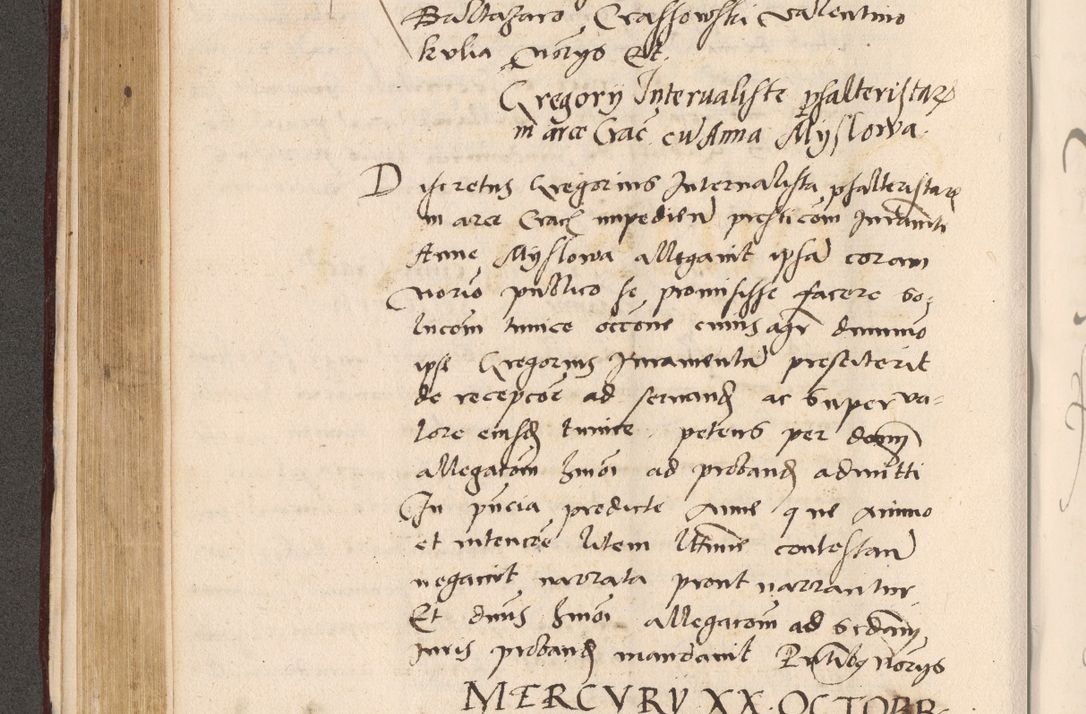 Baltazaro Crassowski Valentino
kulia Norijs Et.
Gregory Internaliste psalteristarꝝ
in arce Crac. cū Anna Myslowa.
Discretus Gregorius Internalista psalteristarꝝ
in arce Crac impedien presticom Iuramti
Anne Myslowa allegavit ipsā coram
Norio publico se promisisse facere so-
lucom tunice occone cuius agr dummo
ipse Gregorius Iuramentū prestiterit
de recepcoe ad servand ac super va-
lore eiusd tunice. petens per dnum
allegacom hmoi ad proband admitti
In pncia predicte Anne que animo
et intencoe litem lttime contestan
negavit narrata prout narrantur
Et dnus hmoi allegacom ad sedam
iuris proband mandavit Pntibus Norijs
MERCVRII XX OCTOBR